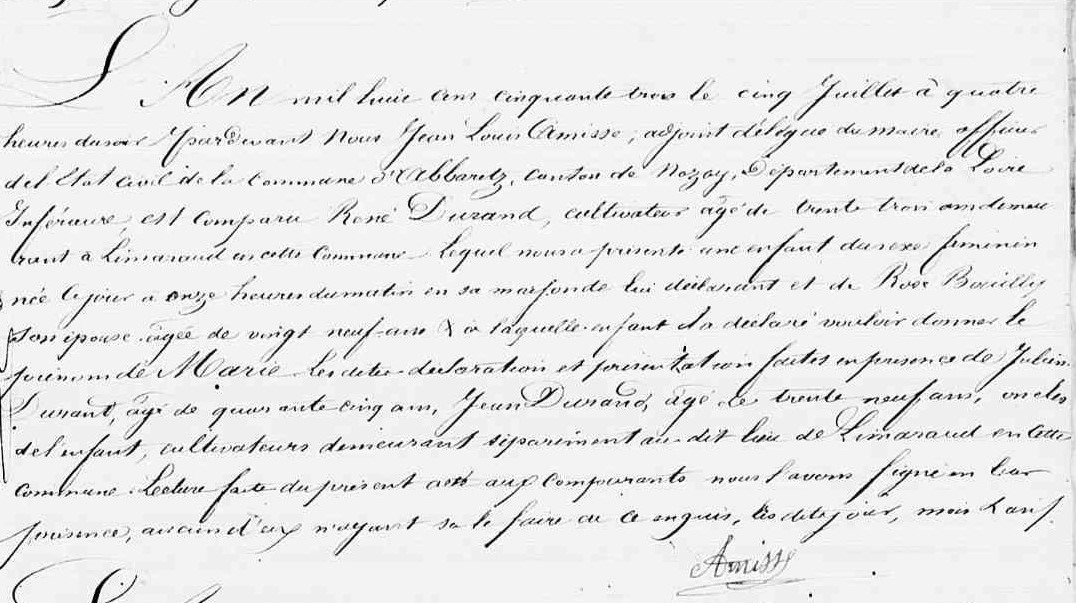 L'An mil huit cent cinquante trois le cinq Juillet à quatre
heures du soir Pardevant Nous Jean Louis Amisse, adjoint délégué du maire, officier
de l'Etat Civil de la Commune d'Abbaretz, Canton de Nozay, Département de la Loire
Inférieure, est Comparu René Durand, cultivateur âgé de trente trois ans demeu
rant à Limaraud en cette Commune Lequel nous a présenté une enfant du sexe féminin
née ce jour à onze heures du matin en sa maison de lui déclarant et de Rose
son épouse âgée de vingt neuf ans & à laquelle enfant il a déclaré vouloir donner le
prénom de Marie Les dites déclaration et présentation faites en présence de Julien
Durant, âgé de quarante cinq ans, Jean Durand, âgé de trente neuf ans, oncles
de l'enfant, cultivateurs demeurant séparément au dit lieu de Limaraud en cette
Commune. Lecture faite du présent acte aux comparants nous l'avons signé en leur
présence, aucun d'eux n'ayant su le faire de ce enquis, les dits jour, mois & an
Amisse